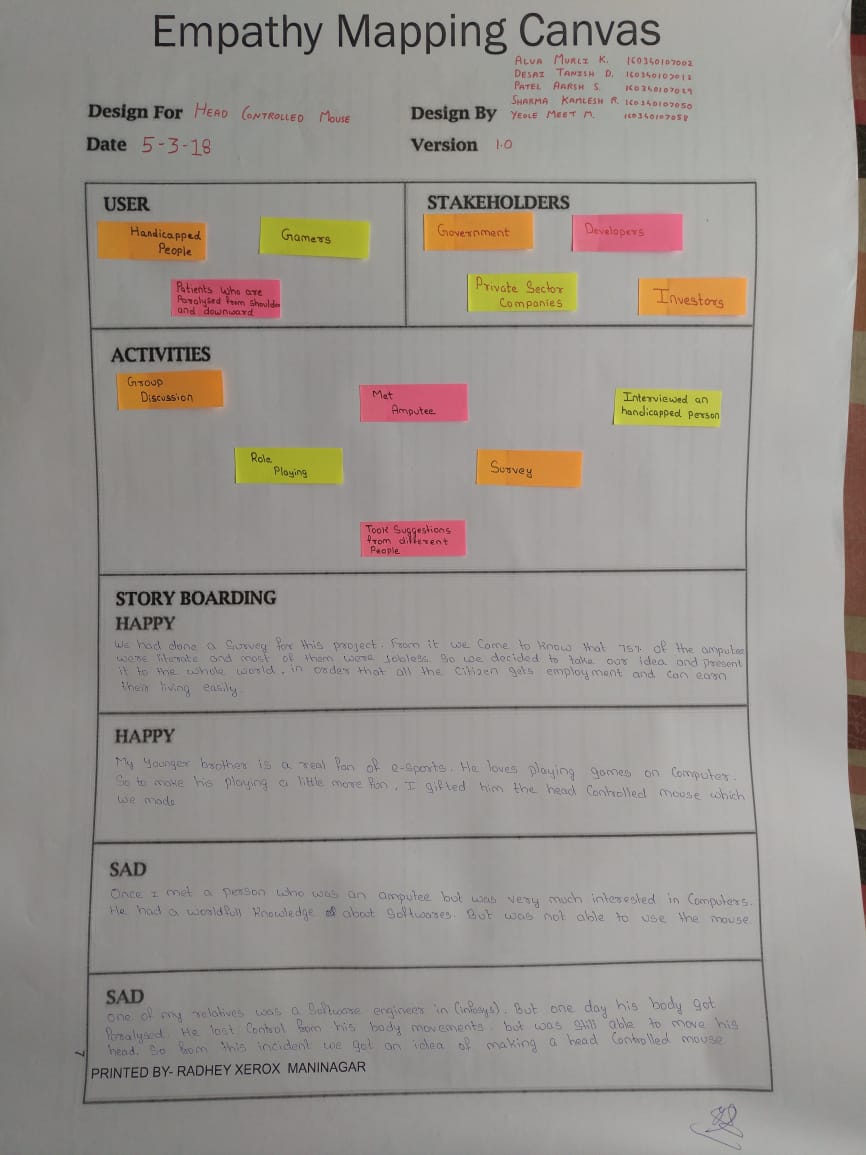 Empathy Mapping Canvas
ALVA MURLI K. 160340107002
DESAI TANISH D. 160340107012
PATEL AARSH S. 160340107029
SHARMA KAMLESH R. 160340107050
YEOLE MEET M. 160340107058
Design For HEAD CONTROLLED MOUSE
Design By
Date 5-3-18
Version 1.0
USER
Handicapped
People
Gamers
Patients who are
Paralysed from Shoulder
and downward
STAKEHOLDERS
Government
Developers
Private Sector
Companies
Investors
ACTIVITIES
Group
Discussion
Met
Amputee
Interviewed an
handicapped person
Role
Playing
Survey
Took Suggestions
from different
People
STORY BOARDING
HAPPY
We had done a Survey for this project. From it we Come to know that 75% of the amputee
were literate and most of them were Jobless. So we decided to take our idea and present
it to the whole world, in order that all the Citizen gets employment and can earn
their living easily.
HAPPY
My Younger brother is a real fan of e-sports. He loves playing games on Computer.
So to make his playing a little more fun, I gifted him the head Controlled mouse which
we made
SAD
Once I met a person who was an amputee but was very much interested in Computers.
He had a worldfull knowledge about Softwares. But was not able to use the mouse
SAD
One of my relatives was a Software engineer in (infosys). But one day his body got
Paralysed. He lost Control from his body movements. but was still able to move his
head. So from this incident we got an idea of making a head Controlled mouse
7
PRINTED BY- RADHEY XEROX MANINAGAR